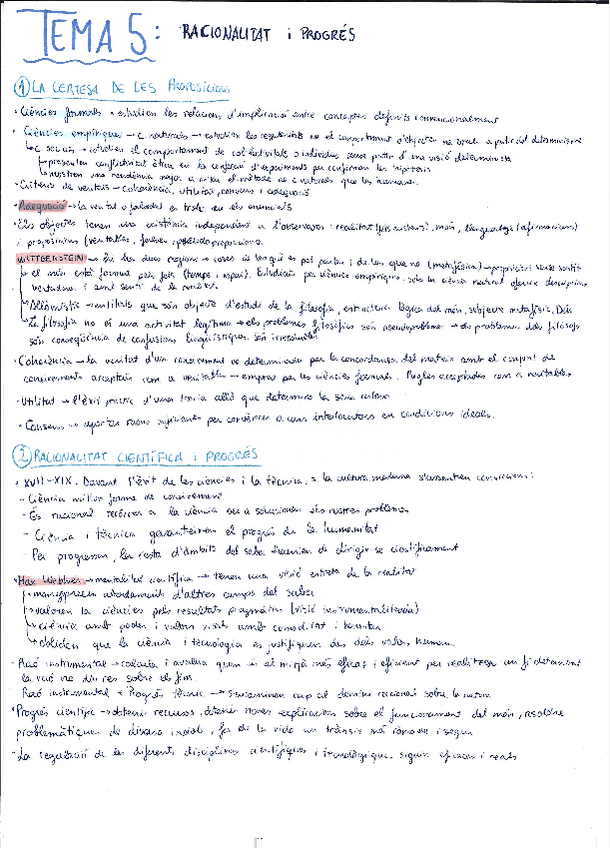 TEMA 5: RACIONALITAT i PROGRÉS
① LA CERTESA DE LES PROPOSICIONS
· Ciències formals → estudien les relacions d'implicació entre conceptes definits convencionalment
· Ciències empíriques → C. naturals → estudien les regularitats en el comportament d'objectes
↳ C. socials → estudien el comportament de col·lectivitats o individus sense partir d'una visió determinista
↳ presenten conflictivitat ètica en la confecció d'experiments per confirmar les hipòtesis
↳ mostren una tendència major a
· Criteris de veritat → coherència, utilitat, consens i adequació
· Adequació → la veritat o falsedat en els enunciats
· Els objectes tenen una existència independent a l'observador: realitat, món, llenguatge (afirmacions)
i proposicions (vertaderes, falses, pseudoproposicions)
· WITTGENSTEIN → hi ha dues regions → coses de les que es pot parlar i de les que no (metafísica) → proposicions sense sentit
↳ el món està format pels fets (temps i espai). Estudiats per ciències empíriques, sols la ciència natural ofereix descripcions
vertaderes i amb sentit de la realitat.
↳ → entitats que són objecte d'estudi de la filosofia, estructura lògica del món, subjecte metafísic, Déu
↳ La filosofia no és una activitat legítima → els problemes filosòfics són pseudoproblemes → els problemes dels filòsofs
són conseqüència de confusions lingüístiques, són irresolubles
· Coherència → la veritat d'un coneixement ve determinada per la concordança del mateix amb el conjunt de
coneixements acceptats com a veritables → emprat per les ciències formals. Regles acceptades com a veritables
· Utilitat → l'èxit pràctic d'una teoria allò que determina la seua validesa
· Consens → aportar raons suficients per convèncer a uns interlocutors en condicions ideals.
② RACIONALITAT CIENTÍFICA i PROGRÉS
· XVII - XIX. Davant l'èxit de les ciències i la tècnica, a la cultura moderna s'assenten conviccions:
- Ciència millor forma de coneixement
- És racional recórrer a la ciència per a solucionar els nostres problemes
- Ciència i tècnica garanteixen el progrés de la humanitat
- Per progressar, la resta d'àmbits del saber haurien de dirigir-se científicament
· Max Weber → mentalitat científica → tenen una visió estreta de la realitat
↳ menyspreen abordaments d'altres camps del saber
↳ valoren la ciència pels resultats pragmàtics (visió instrumentalitzada)
↳ ciència amb poder i valors units amb comoditat i benestar
↳ obliden que la ciència i tecnologia es justifiquen des dels valors humans.
· Raó instrumental → calcula i avalua quin és el mitjà més eficaç i eficient per realitzar un fi determinat
la raó no diu res sobre els fins.
Raó instrumental + Progrés tècnic → s'encaminen cap al domini racional sobre la natura
· Progrés científic → obtenir recursos, obtenir noves explicacions sobre el funcionament del món, resoldre
problemàtiques de diversa índole, fa de la vida un trànsit més còmode i segur
· La regulació de les diferents disciplines científiques i tecnològiques, siguin eficaces i reals